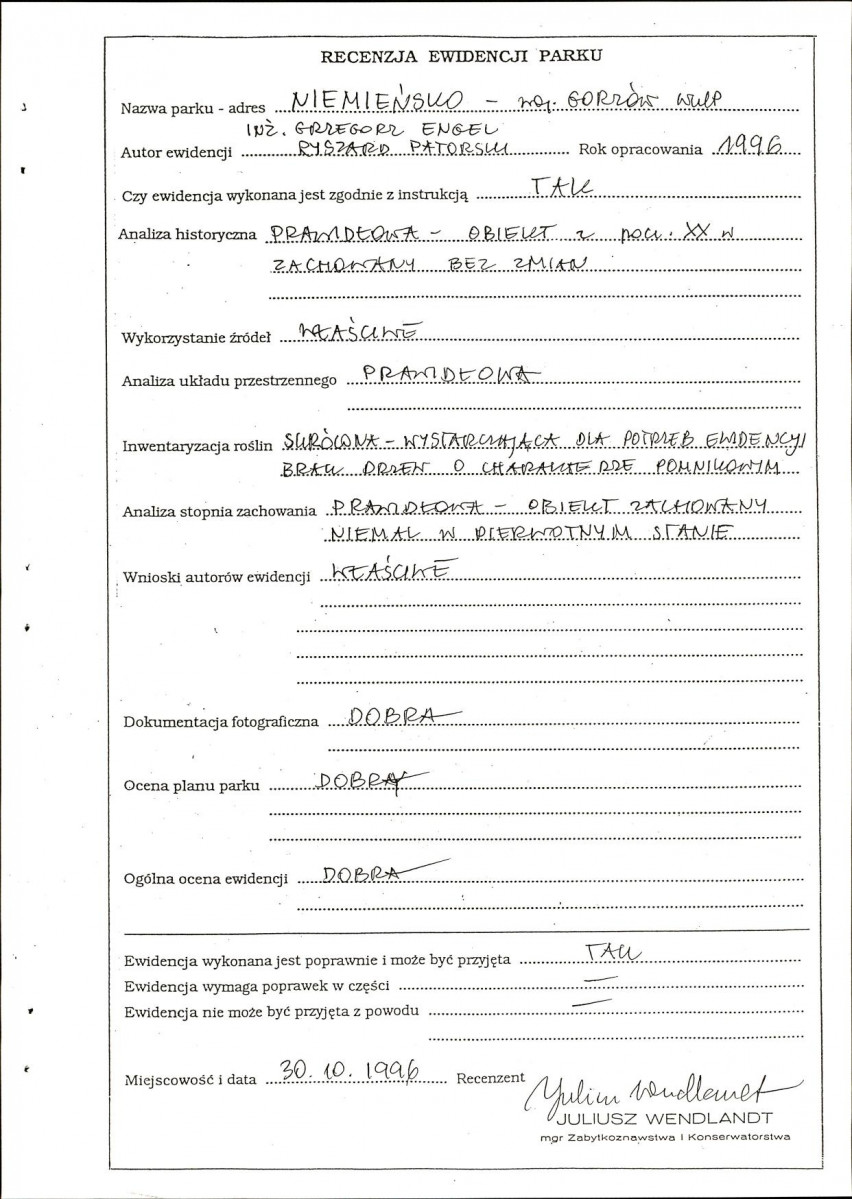 RECENZJA EWIDENCJI PARKU
Nazwa parku - adres NIEMIEŃSKO - woj. GORZÓW WLKP
INŻ. GRZEGORZ ENGEL
Autor ewidencji RYSZARD PATORSKI Rok opracowania 1996
Czy ewidencja wykonana jest zgodnie z instrukcją TAK
Analiza historyczna PRAWIDŁOWA - OBIEKT z pocz. XX w
ZACHOWANY BEZ ZMIAN
Wykorzystanie źródeł WŁAŚCIWE
Analiza układu przestrzennego PRAWIDŁOWA
Inwentaryzacja roślin SKRÓCONA - WYSTARCZAJĄCA DLA POTRZEB EWIDENCJI
BRAK DRZEW O CHARAKTERZE POMNIKOWYM
Analiza stopnia zachowania PRAWIDŁOWA - OBIEKT ZACHOWANY
NIEMAL W PIERWOTNYM STANIE
Wnioski autorów ewidencji WŁAŚCIWE
Dokumentacja fotograficzna DOBRA
Ocena planu parku DOBRA
Ogólna ocena ewidencji DOBRA
Ewidencja wykonana jest poprawnie i może być przyjęta TAK
Ewidencja wymaga poprawek w części —
Ewidencja nie może być przyjęta z powodu —
Miejscowość i data 30.10.1996 Recenzent Juliusz Wendlandt
JULIUSZ WENDLANDT
mgr Zabytkoznawstwa i Konserwatorstwa